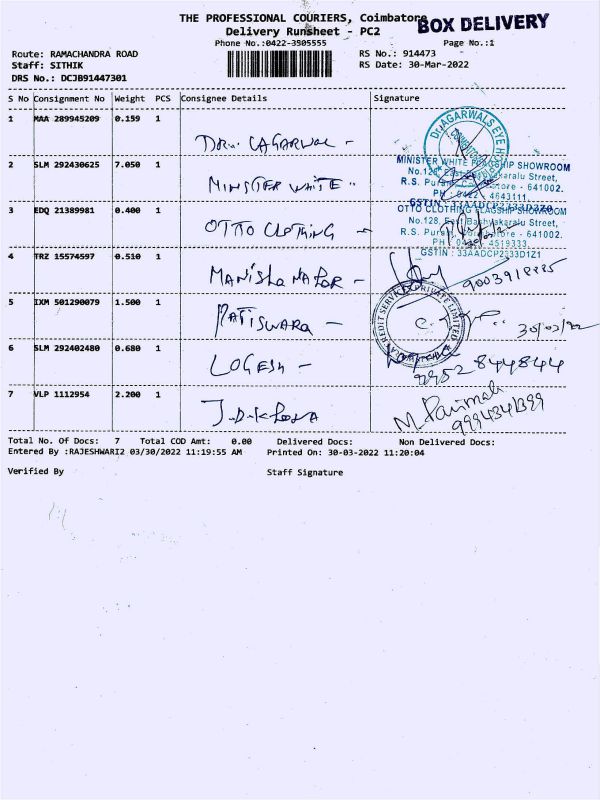 THE PROFESSIONAL COURIERS, Coimbatore
BOX DELIVERY
Delivery Runsheet - PC2
Phone No.:0422-3505555
Page No.:1
Route: RAMACHANDRA ROAD
RS No.: 914473
Staff: SITHIK
RS Date: 30-Mar-2022
DRS No.: DCJB91447301
S No Consignment No Weight PCS Consignee Details Signature
1 MAA 289945209 0.159 1
Dr. AGARWAL -
Dr. AGARWALS EYE
2 SLM 292430625 7.050 1
MINISTER WHITE
MINISTER WHITE FLAGSHIP SHOWROOM
No.128, East Bashyakaralu Street,
R.S. Puram, Coimbatore - 641002.
PH : 0422 - 4643111.
GSTIN : 33AADCP2333D3Z0
3 EDQ 21389981 0.400 1
OTTO CLOTHING -
OTTO CLOTHING FLAGSHIP SHOWROOM
No.128, East Bashyakaralu Street,
R.S. Puram, Coimbatore - 641002.
PH : 0422 - 4519333.
GSTIN : 33AADCP2333D1Z1
4 TRZ 15574597 0.510 1
5 IXM 501290079 1.500 1
CREDIT SERVICES PRIVATE LIMITED
30/03/22
6 SLM 292402480 0.680 1
LOGESH -
9952844844
7 VLP 1112954 2.200 1
M. Parimala
Total No. Of Docs: 7 Total COD Amt: 0.00 Delivered Docs: Non Delivered Docs:
Entered By :RAJESHWARI2 03/30/2022 11:19:55 AM Printed On: 30-03-2022 11:20:04
Verified By Staff Signature